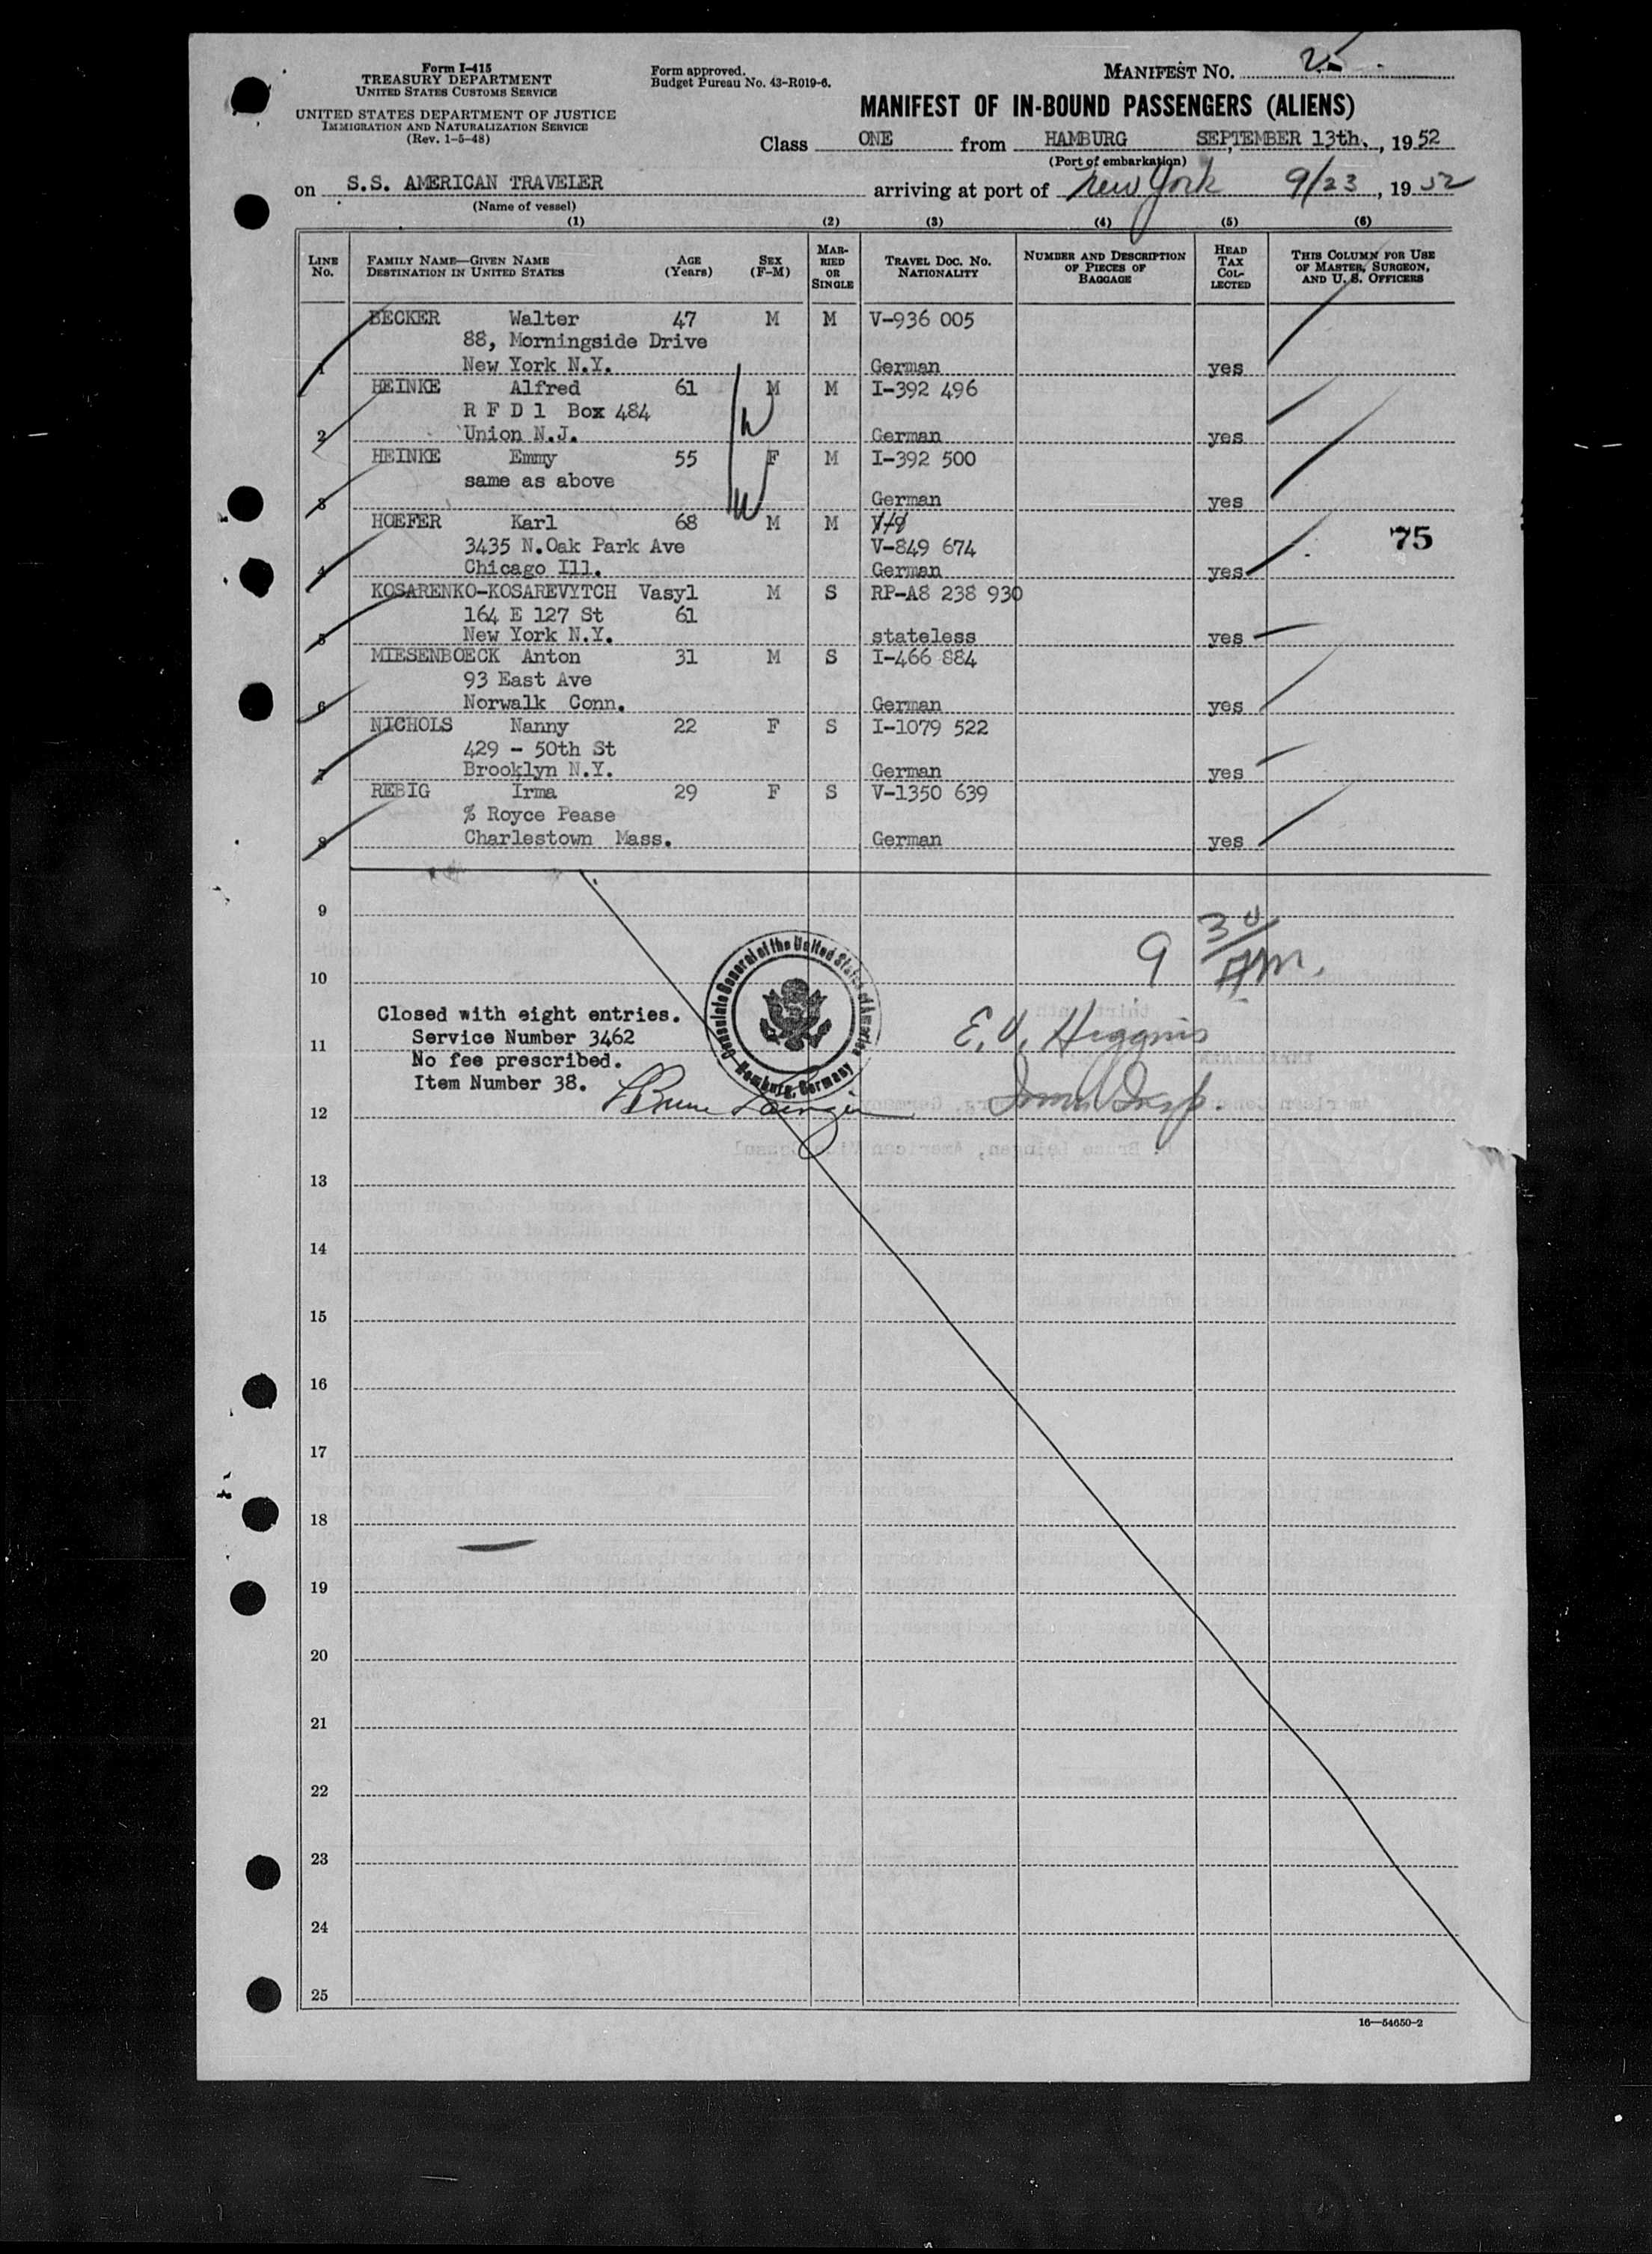 Form I-415
TREASURY DEPARTMENT
UNITED STATES CUSTOMS SERVICE
UNITED STATES DEPARTMENT OF JUSTICE
IMMIGRATION AND NATURALIZATION SERVICE
(Rev. 1-5-48)
Form approved.
Budget Bureau No. 43-R019-6.
MANIFEST NO. 25
MANIFEST OF IN-BOUND PASSENGERS (ALIENS)
Class ONE from HAMBURG SEPTEMBER 13th, 1952
(Port of embarkation)
on S.S. AMERICAN TRAVELER arriving at port of New York 9/23, 1952
(Name of vessel)
(1) (2) (3) (4) (5) (6)
LINE No. FAMILY NAME—GIVEN NAME DESTINATION IN UNITED STATES AGE (Years) SEX (F-M) MARRIED OR SINGLE TRAVEL DOC. NO. NATIONALITY NUMBER AND DESCRIPTION OF PIECES OF BAGGAGE HEAD TAX COLLECTED THIS COLUMN FOR USE OF MASTER, SURGEON, AND U. S. OFFICERS
BECKER Walter 47 M M V-936 005
88, Morningside Drive
1 New York N.Y. German yes
HEINKE Alfred 61 M M I-392 496
R F D 1 Box 484
2 Union N.J. German yes
HEINKE Emmy 55 F M I-392 500
same as above
3 German yes
HOEFER Karl 68 M M V-8
3435 N.Oak Park Ave V-849 674 75
4 Chicago Ill. German yes
KOSARENKO-KOSAREVYTCH Vasyl M S RP-A8 238 930
164 E 127 St 61
5 New York N.Y. stateless yes
MIESENBOECK Anton 31 M S I-466 884
93 East Ave
6 Norwalk Conn. German yes
NICHOLS Nanny 22 F S I-1079 522
429 - 50th St
7 Brooklyn N.Y. German yes
REBIG Irma 29 F S V-1350 639
% Royce Pease
8 Charlestown Mass. German yes
9
9 30/AM.
10
Consulate General of the United States of America
Hamburg, Germany
Closed with eight entries.
Service Number 3462
E. V. Higgins
11
No fee prescribed.
Item Number 38.
12
13
14
15
16
17
18
19
20
21
22
23
24
25
16—54650-2